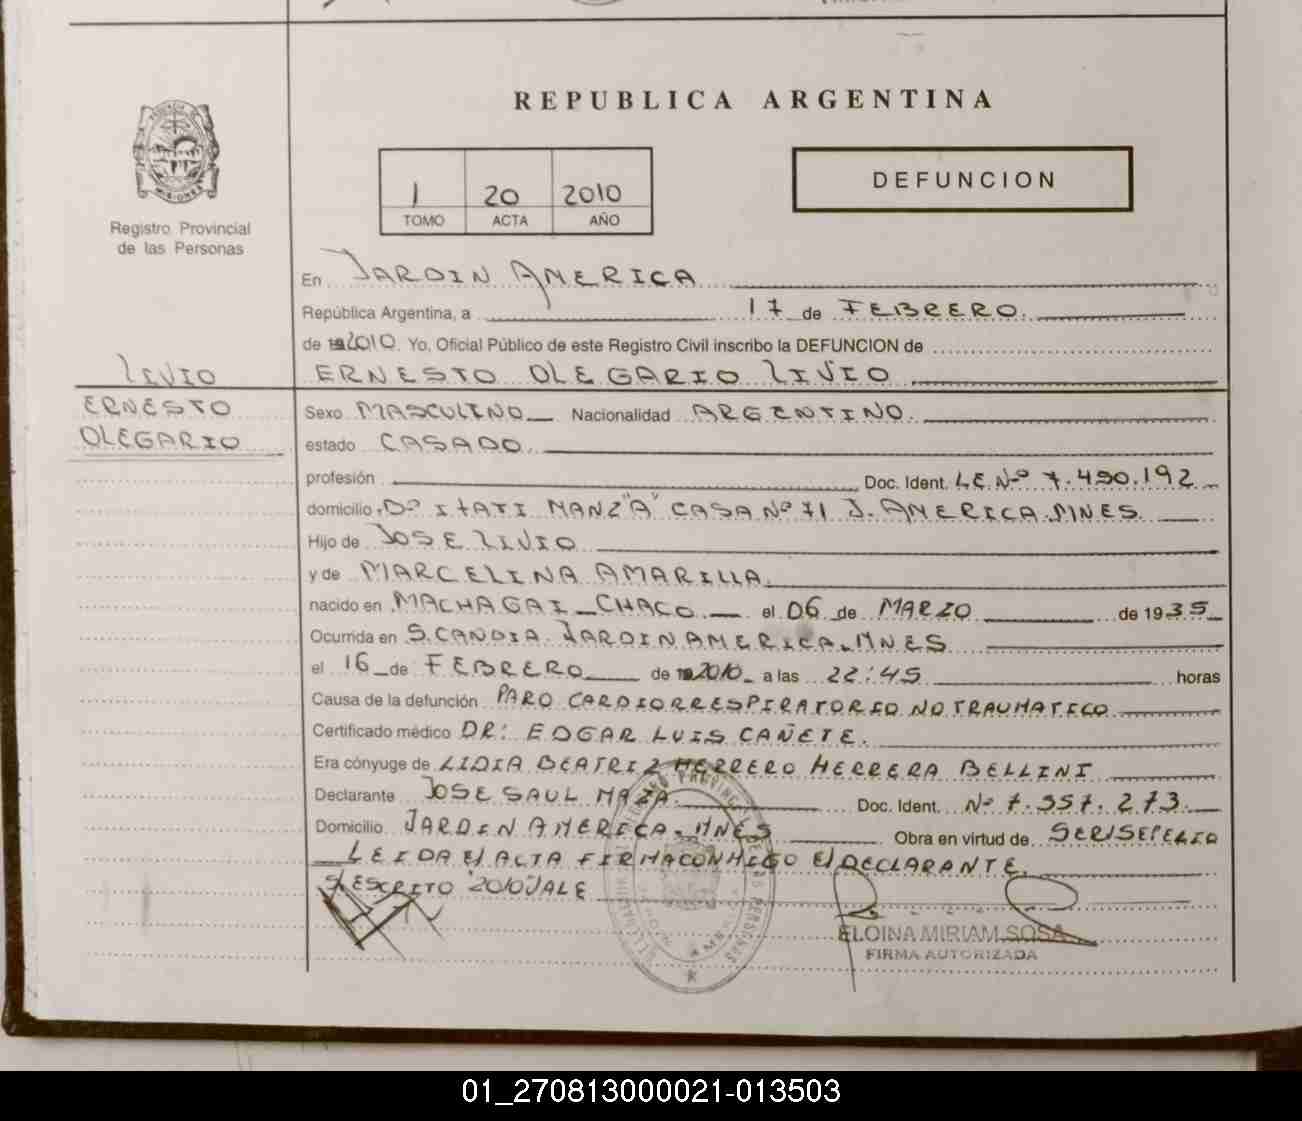 REPUBLICA ARGENTINA
PROVINCIA DE
MISIONES
Registro Provincial
de las Personas
1 20 2010
TOMO ACTA AÑO
DEFUNCION
En JARDIN AMERICA
República Argentina, a 17 de FEBRERO.
de 192010. Yo, Oficial Público de este Registro Civil inscribo la DEFUNCION de
LIVIO
ERNESTO
OLEGARIO
ERNESTO OLEGARIO LIVIO
Sexo MASCULINO Nacionalidad ARGENTINO.
estado CASADO.
profesión Doc. Ident. L.E. Nº 7.490.192
domicilio Dº ITATI MANZ "A" CASA Nº 71 J. AMERICA. MNES
Hijo de JOSE LIVIO
y de MARCELINA AMARILLA.
nacido en MACHAGAI - CHACO el 06 de MARZO de 1935
Ocurrida en S. CANDIA. JARDIN AMERICA. MNES
el 16 de FEBRERO de 192010 a las 22:45 horas
Causa de la defunción PARO CARDIORRESPIRATORIO NO TRAUMATICO
Certificado médico DR: EDGAR LUIS CAÑETE.
Era cónyuge de LIDIA BEATRIZ HERRERO HERRERA BELLINI
Declarante JOSE SAUL MAZA. Doc. Ident. Nº 7.557.273
Domicilio JARDIN AMERICA. MNES Obra en virtud de SER/SEPELIO
LEIDA El ACTA FIRMA CONMIGO El DECLARANTE.
S/ ESCRITO "2010" VALE
ELOINA MIRIAM SOSA
FIRMA AUTORIZADA
01_270813000021-013503